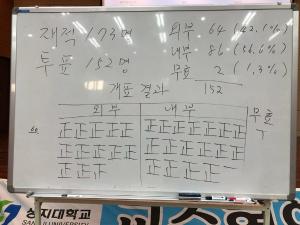 재적 173명
투표 152명
외부 64 (42.1%)
내부 86 (56.6%)
무효 2 (1.3%)
152
개표 결과
외부 내부 무효
正正正正正 正正正正正正
正正正正正 正正正正正正
正正正 正正正正正一
상지대학교
SANGJI UNIVERSITY